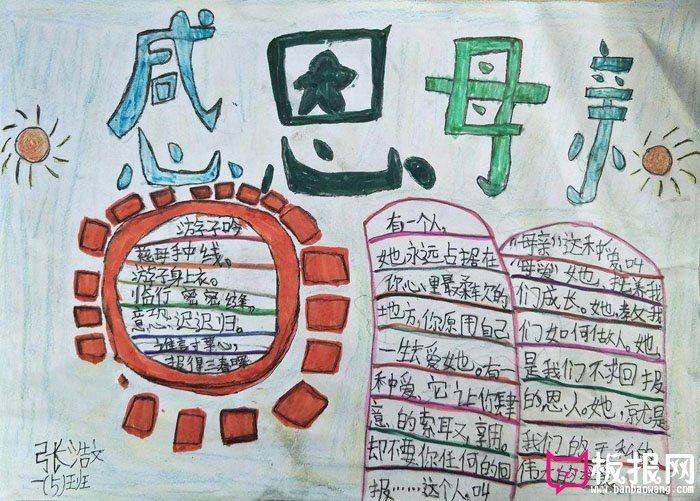 感恩母亲
游子吟
慈母手中线,
游子身上衣。
临行密密缝,
意恐迟迟归。
谁言寸草心,
报得三春晖
有一个人,
她永远占据在
你心里最柔软的
地方,你愿用自己
一生去爱她。有一
种爱,它让你肆
意的索取,享用,
却不要你任何的回
报……这个人,叫
"母亲"这种爱,叫
"母爱"她,抚养我
们成长。她,教我
们如何做人。她,
是我们不求回报
的恩人。她,就是
我们的
伟大的
张浩文
一(5)班
板报网
www.banbaowang.com